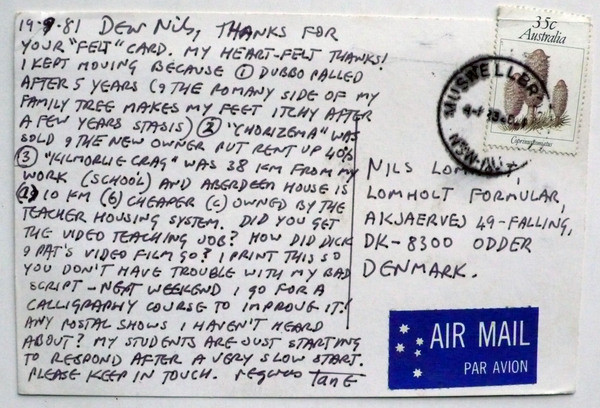 19-9-81 DEAR Nils, THANKS FOR
YOUR "FELT" CARD. MY HEART-FELT THANKS!
I KEPT MOVING BECAUSE ① DUBBO PALLED
AFTER 5 YEARS (& THE ROMANY SIDE OF MY
FAMILY TREE MAKES MY FEET ITCHY AFTER
A FEW YEARS STASIS) ② "CHORIZEMA" WAS
SOLD & THE NEW OWNER PUT RENT UP 40%
③ "KILMORLIE CRAG" WAS 38 KM FROM MY
WORK (SCHOOL) AND ABERDEEN HOUSE IS
10 KM (b) CHEAPER (c) OWNED BY THE
TEACHER HOUSING SYSTEM. DID YOU GET
THE VIDEO TEACHING JOB? HOW DID DICK
& PAT'S VIDEO FILM GO? I PRINT THIS SO
YOU DON'T HAVE TROUBLE WITH MY BAD
SCRIPT - NEXT WEEKEND I GO FOR A
CALLIGRAPHY COURSE TO IMPROVE IT!
ANY POSTAL SHOWS I HAVEN'T HEARD
ABOUT? MY STUDENTS ARE JUST STARTING
TO RESPOND AFTER A VERY SLOW START.
PLEASE KEEP IN TOUCH. regards TanE
35c
Australia
MUSWELLBR
NSW-AU
NILS LOMHOLT,
LOMHOLT FORMULAR,
AKJAERVEJ 49-FALLING,
DK-8300 ODDER
DENMARK.
AIR MAIL
PAR AVION